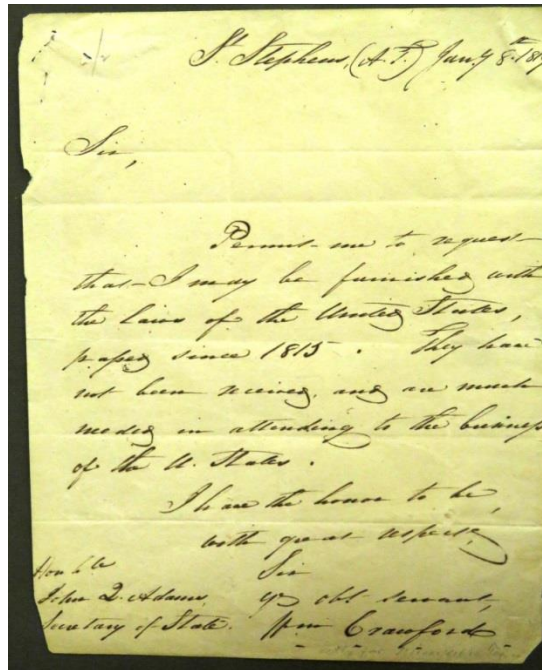 St. Stephens, (A.T.) Jany 8th 181
Sir,
Permit me to request
that I may be furnished with
the Laws of the United States,
passed since 1815. They have
not been received, and are much
needed in attending to the business
of the U. States.
I have the honor to be,
with great respect,
Sir
yr obt servant,
Wm Crawford
Honble
John Q. Adams
Secretary of State.